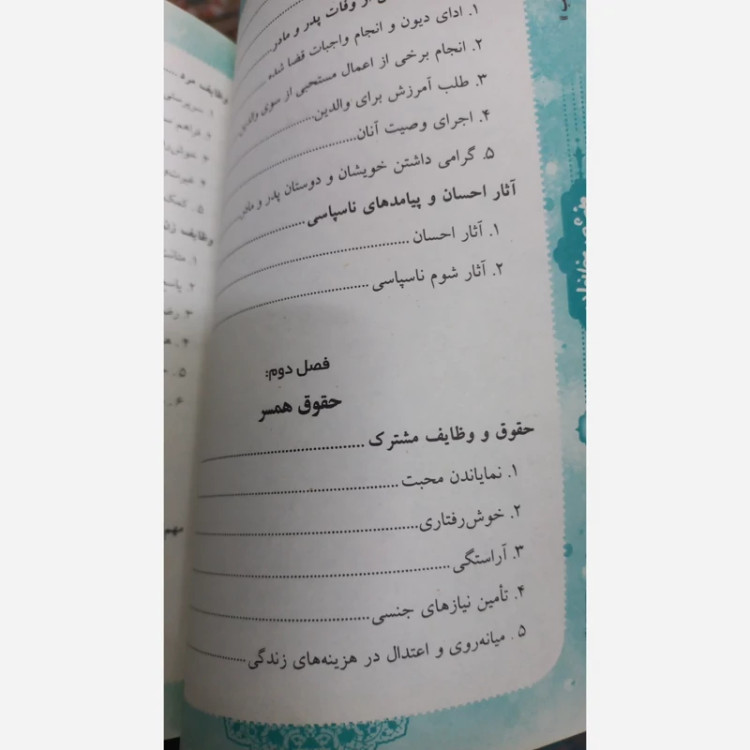 از وفات پدر و مادر
۱. ادای دیون و انجام واجبات قضا شده
۲. انجام برخی از اعمال مستحبی از سوی والدین
۳. طلب آمرزش برای والدین
۴. اجرای وصیت آنان
۵. گرامی داشتن خویشان و دوستان پدر و مادر
آثار احسان و پیامدهای ناسپاسی
۱. آثار احسان
۲. آثار شوم ناسپاسی
فصل دوم:
حقوق همسر
حقوق و وظایف مشترک
۱. نمایاندن محبت
۲. خوش‌رفتاری
۳. آراستگی
۴. تأمین نیازهای جنسی
۵. میانه‌روی و اعتدال در هزینه‌های زندگی
وظایف مرد
۱. سرپرستی
۲. فراهم
۵. کمک
وظایف زن